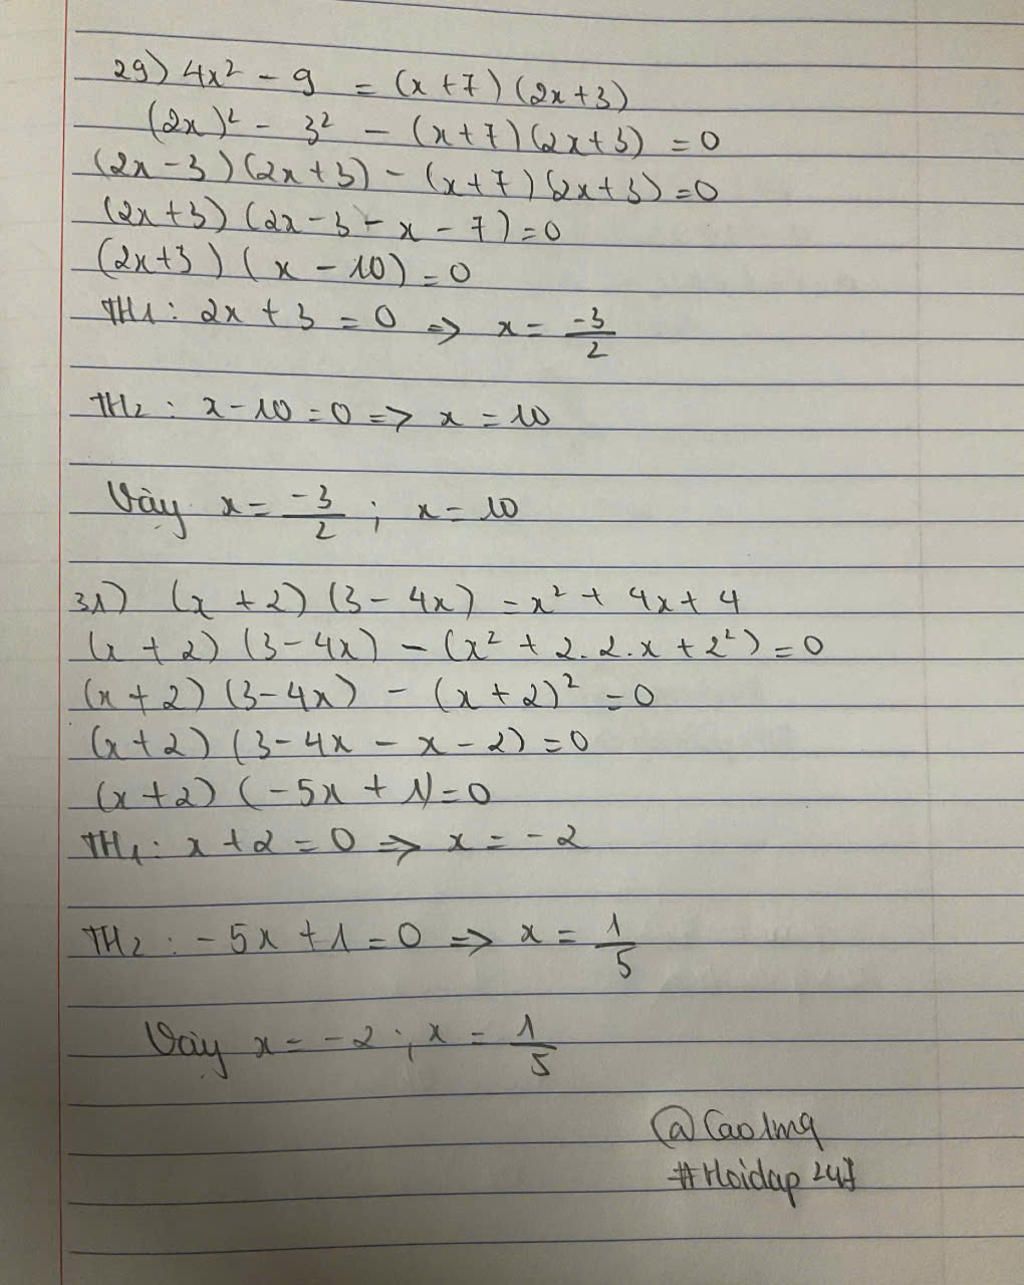 29) 4x² - 9 = (x+7)(2x+3)
(2x)² - 3² - (x+7)(2x+3) = 0
(2x-3)(2x+3) - (x+7)(2x+3) = 0
(2x+3)(2x-3-x-7) = 0
(2x+3)(x-10) = 0
TH1: 2x+3 = 0 => x = -3/2
TH2: x-10 = 0 => x = 10
Vậy x = -3/2 ; x = 10
31) (x+2)(3-4x) = x² + 4x + 4
(x+2)(3-4x) - (x² + 2.2.x + 2²) = 0
(x+2)(3-4x) - (x+2)² = 0
(x+2)(3-4x-x-2) = 0
(x+2)(-5x+1) = 0
TH1: x+2 = 0 => x = -2
TH2: -5x+1 = 0 => x = 1/5
Vậy x = -2 ; x = 1/5
#Hoidap247